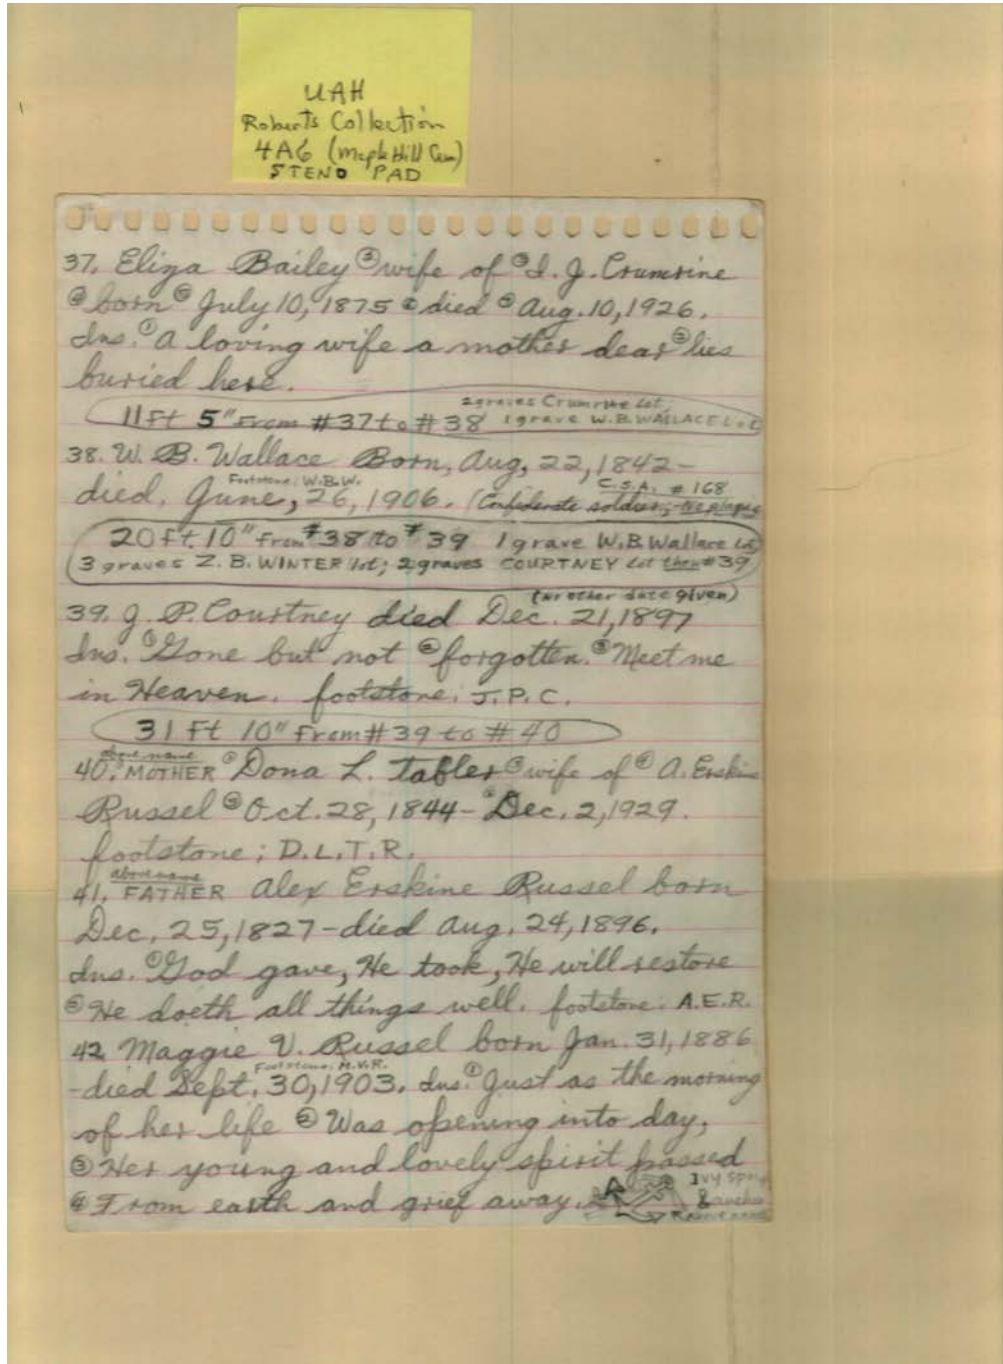 UAH
Roberts Collection
4A6 (Maple Hill Cem)
STENO PAD
37. Eliza Bailey ② wife of ③ I. J. Crumrine
④ born ⑤ July 10, 1875 ⑥ died ⑦ Aug. 10, 1926.
Ins. ① A loving wife a mother dear ② lies
buried here.
2 graves Crumrine Lot;
11 Ft 5" From #37 to #38 1 grave W.B. WALLACE Lot
38. W. B. Wallace Born, Aug, 22, 1842 -
Footstone: W.B.W. C.S.A. #168
died, June, 26, 1906. (Confederate soldier;
20 Ft. 10" From #38 to #39 1 grave W.B. Wallace Lot
3 graves Z. B. WINTER Lot; 2 graves COURTNEY Lot then #39
(no other date given)
39. J. P. Courtney died Dec. 21, 1897
Ins. ① Gone but not ② forgotten. ③ Meet me
in Heaven. footstone: J.P.C.
31 Ft 10" From #39 to #40
above name
40. MOTHER ② Dona L. Tabler ③ wife of ④ A. Erskine
Russel ⑤ Oct. 28, 1844 - Dec. 2, 1929.
footstone; D.L.T.R.
above name
41. FATHER Alex Erskine Russel born
Dec. 25, 1827 - died Aug. 24, 1896.
Ins. ① God gave, He took, He will restore
② He doeth all things well. footstone: A.E.R.
42. Maggie V. Russel born Jan. 31, 1886
Footstone: M.V.R.
- died Sept. 30, 1903. Ins. ① Just as the morning
of her life ② Was opening into day,
③ Her young and lovely spirit passed
④ From earth and grief away.
Ivy